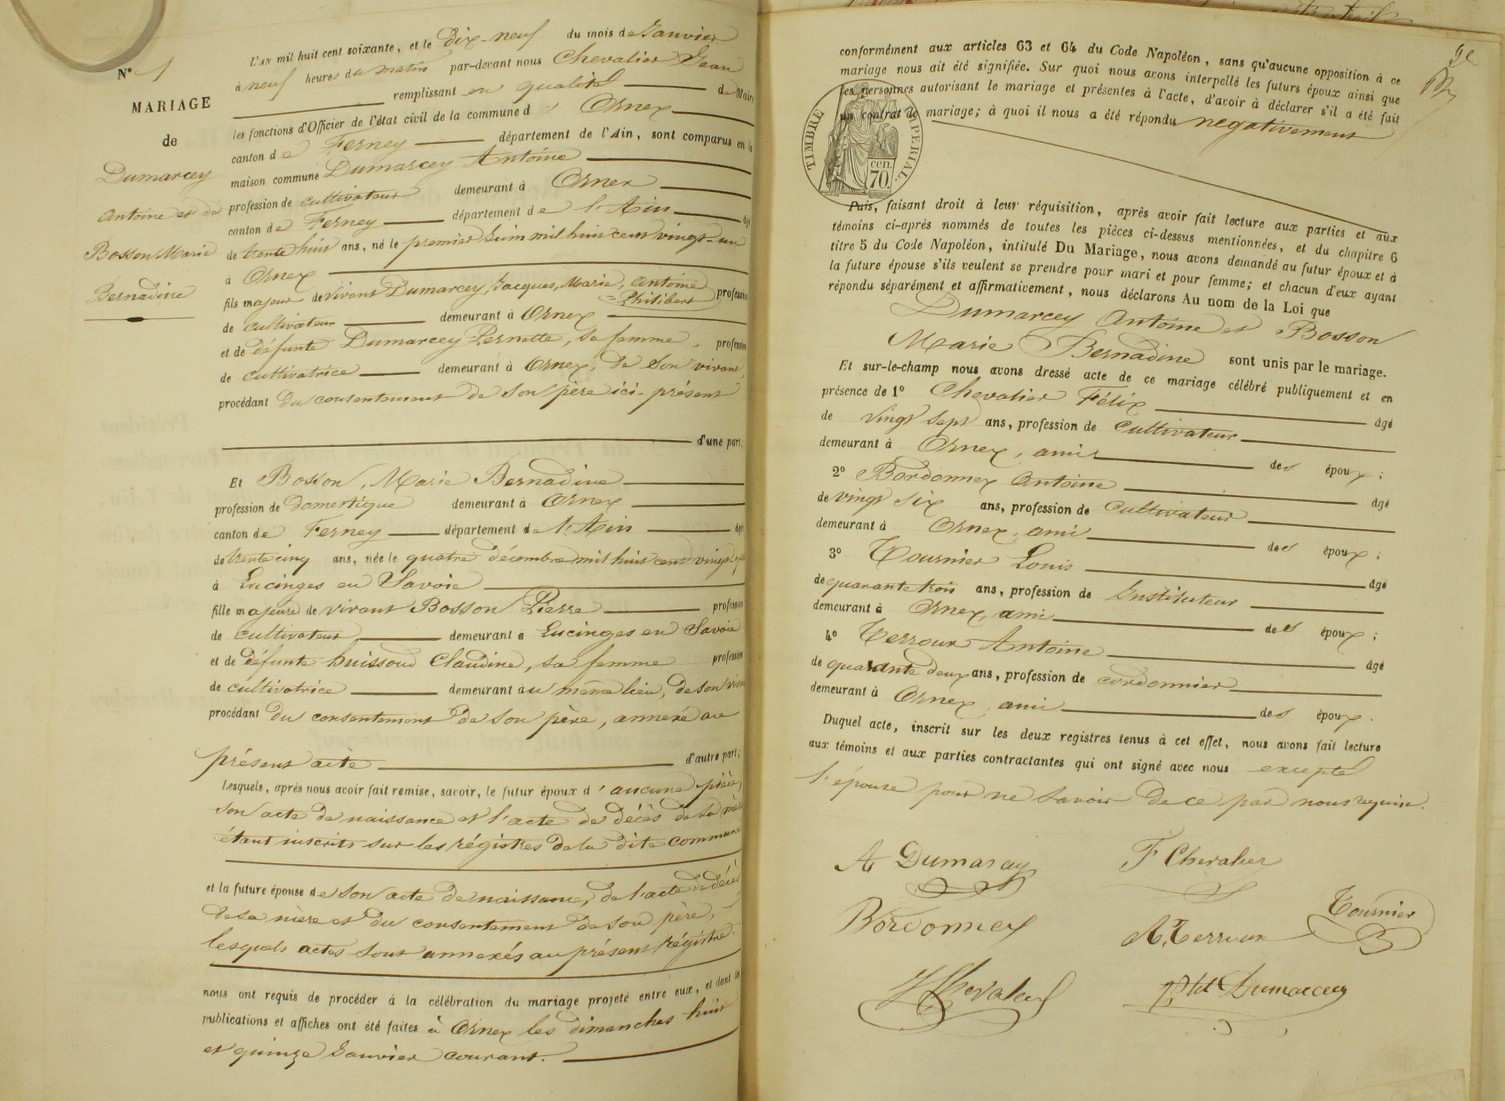 N° 1
MARIAGE
de
Dumarcey
Antoine et de
Bosson Marie
Bernadine
L'an mil huit cent soixante, et le Dix-neuf du mois de Janvier
à neuf heures du matin par-devant nous Chevalier Jean
remplissant en qualité de Maire
les fonctions d'Officier de l'état civil de la commune d' Ornex
canton de Ferney département de l'Ain, sont comparus en la
maison commune Dumarcey Antoine
profession de cultivateur demeurant à Ornex
canton de Ferney département de l'Ain âgé
de trente huit ans, né le premier Juin mil huit cent vingt-un
à Ornex
fils majeur de vivant Dumarcey, Jacques, Marie, Antoine
Philibert profession
de cultivateur demeurant à Ornex
et de défunte Dumarcey Pernette, sa femme, profession
de cultivatrice demeurant à Ornex, de Son vivant,
procédant du consentement de Son père ici-présent
d'une part;
Et Bosson, Marie Bernadine
profession de domestique demeurant à Ornex
canton de Ferney département de l'Ain âgé
de trente cinq ans, née le quatre décembre mil huit cent vingt
à Lucinges en Savoie
fille majeure de vivant Bosson Pierre profession
de cultivateur demeurant à Lucinges en Savoie
et de défunte huissoud Claudine, sa femme profession
de cultivatrice demeurant au même lieu, de son vivant
procédant du consentement de Son père, annexé au
présent acte d'autre part;
Lesquels, après nous avoir fait remise, savoir, le futur époux d'aucune pièce,
son acte de naissance et l'acte de décès de sa mère
étant inscrits sur les régistres de la dite commune
et la future épouse de son acte de naissance, de l'acte de décès
de sa mère et du consentement de son père,
lesquels actes sont annexés au présent régistre.
nous ont requis de procéder à la célébration du mariage projeté entre eux, et dont les
publications et affiches ont été faites à Ornex les dimanches huit
et quinze Janvier courant.
conformément aux articles 63 et 64 du Code Napoléon, sans qu'aucune opposition à ce
mariage nous ait été signifiée. Sur quoi nous avons interpellé les futurs époux ainsi que
les personnes autorisant le mariage et présentes à l'acte, d'avoir à déclarer s'il a été fait
un contrat de mariage; à quoi il nous a été répondu negativement
TIMBRE IMPÉRIAL
cen.
70
Puis, faisant droit à leur réquisition, après avoir fait lecture aux parties et aux
témoins ci-après nommés de toutes les pièces ci-dessus mentionnées, et du chapitre 6
titre 5 du Code Napoléon, intitulé Du Mariage, nous avons demandé au futur époux et à
la future épouse s'ils veulent se prendre pour mari et pour femme; et chacun d'eux ayant
répondu séparément et affirmativement, nous déclarons Au nom de la Loi que
Dumarcey Antoine et Bosson
Marie Bernadine sont unis par le mariage.
Et sur-le-champ nous avons dressé acte de ce mariage célébré publiquement et en
présence de 1° Chevalier Félix âgé
de vingt sept ans, profession de Cultivateur
demeurant à Ornex, ami des époux;
2° Bordonnex Antoine âgé
de vingt six ans, profession de cultivateur
demeurant à Ornex, ami des époux;
3° Tournier Louis âgé
de quarante trois ans, profession de Instituteur
demeurant à Ornex, ami des époux;
4° Terroux Antoine âgé
de quarante deux ans, profession de cordonnier
demeurant à Ornex, ami des époux.
Duquel acte, inscrit sur les deux registres tenus à cet effet, nous avons fait lecture
aux témoins et aux parties contractantes qui ont signé avec nous excepté
l'épouse pour ne savoir de ce par nous requise.
At Dumarcay F Chevalier
Bordonnex At. Terroux Tournier
J Chevalier Phlt Dumarcey